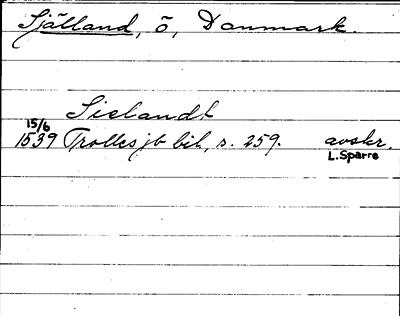 Själland, ö, Danmark.
Sielandt
15/6
1539 Trolles jb bil, s. 259. avskr.
L. Sparre